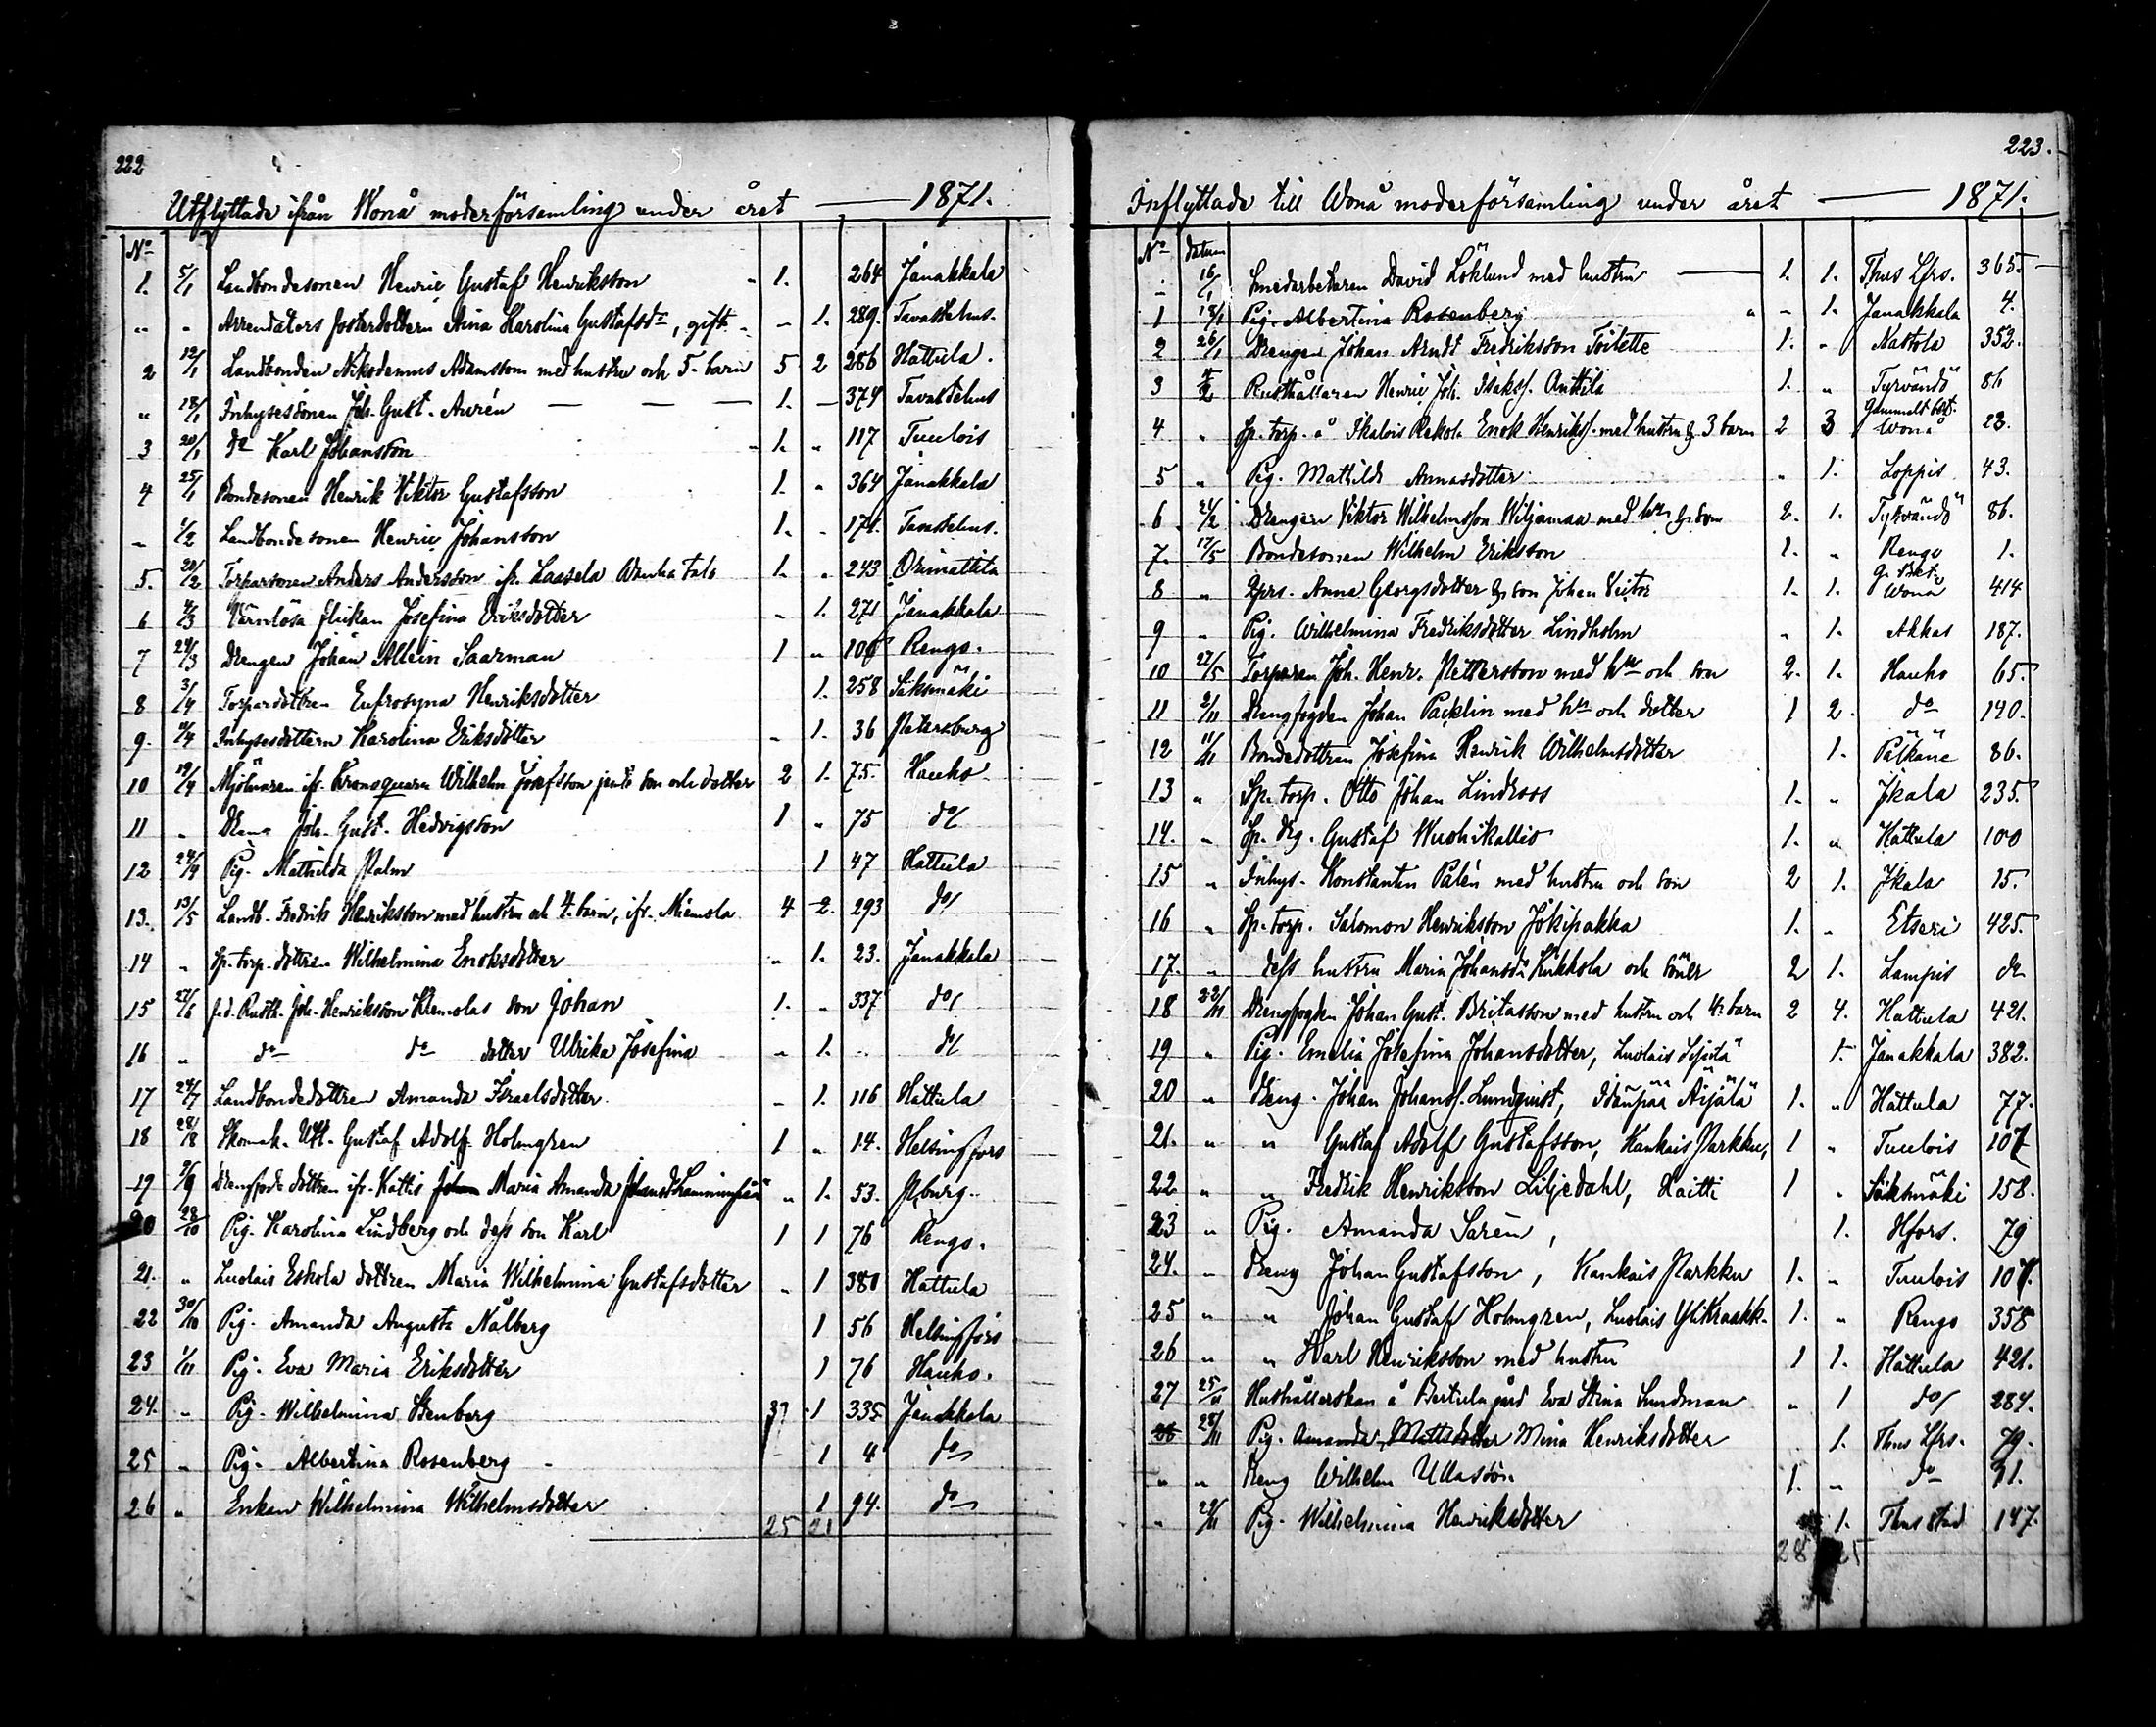 222
Utflyttade ifrån Wonå moderförsamling under året — 1871.
No
1. 5/1 Landbondesonen Henric Gustaf Henriksson - 1. 264 Janakkala
" " Arrendators fosterdottern Aina Karolina Gustafsdr, gift - - 1. 289. Tavastehus.
2 12/1 Landbonden Nikodemus Adamsson med hustru och 5 barn 5 2 286 Hattula.
" 18/1 Inhysessonen Joh. Gust. Aurén — — — 1. — 374 Tavastehus
3 20/1 do Karl Johansson - 1. " 117 Tuulois
4 25/1 Bondesonen Henrik Viktor Gustafsson 1. " 364 Janakkala
" 1/2 Landbondesonen Henric Johansson 1. - 171. Tavastehus.
5. 20/2 Torparsonen Anders Andersson ifr. Laasela Wanha talo 1. " 243 Orimattila
6 4/3 Värnlösa flickan Josefina Eriksdotter - 1. 271 Janakkala
7 24/3 Drengen Johan Allein Saarman 1 " 100 Rengo.
8 3/4 Torpardottren Eufrosyna Henriksdotter 1. 258 Sääksmäki
9. 11/4 Inhysesdottern Karolina Eriksdotter - 1. 36 Petersburg
10 19/4 Mjölnaren ifr. Kronoquarn Wilhelm Josefsson jemte son och dotter 2 1. 75. Hauho
11 " Dreng Joh. Gust. Hedvigsson 1 " 75 do
12 24/4 Pig. Mathilda Palm 1 47 Hattula
13. 13/5 Landb. Fredrik Henriksson med hustru och 4 barn, ifr. Miemola 4 2. 293 do
14 " Sp. torp. dottren Wilhelmina Enoksdotter " 1. 23. Janakkala
15 27/6 f.d. Rusth. Joh. Henriksson Klemolas son Johan 1. " 337 do
16 " do do dotter Ulrika Josefina " 1. " do
17 24/7 Landbondedottren Amanda Israelsdotter - 1. 116 Hattula
18 28/8 Skomak. Gustaf Adolf Holmgren 1 " 14. Helsingfors
19 9/9 dottren ifr. Kattis Johan Maria Amanda " 1. 53. Pburg.
20 28/10 Pig. Karolina Lindberg och dess son Karl 1 1 76 Rengo.
21. " Luolais Eskola dottren Maria Wilhelmina Gustafsdotter " 1 380 Hattula
22 30/10 Pig. Amanda Augusta Nålberg 1 56 Helsingfors
23 1/11 Pig. Eva Maria Eriksdotter 1 76 Hauho.
24. " Pig. Wilhelmina Stenberg 37 1 335 Janakkala
25 " Pig. Albertina Rosenberg - 1 4 do
26 " Enkan Wilhelmina Wilhelmsdotter 1 94. do
25 21
223.
Inflyttade till Wonå moderförsamling under året — 1871.
No datum
" 16/1 Smedarbetaren David Löklund med hustru — 1. 1. Thus Lfrs. 365.
1 18/1 Pig. Albertina Rosenberg " - 1. Janakkala 4.
2 26/1 Drengen Johan Arndt Fredriksson Toilette 1. " Nastola 352.
3 4/2 Rusthållaren Henric Joh. Isakss. Anttila 1. " Tyrvändö 86
4 " Sp. torp. å Ikalois Rekola Enok Henrikss. med hustru & 3 barn 2 3 Gammalt bet. Wonå 23.
5 " Pig. Mathilda Annasdotter " 1. Loppis 43.
6 21/2 Drengen Viktor Wilhelmsson Wiljamaa med hu & son 2. 1. Tyrvändö 86.
7. 17/5 Bondesonen Wilhelm Eriksson 1. " Rengo 1.
8 " Anna Georgsdotter & son Johan Victor 1. 1. G. Bet. Wonå 414
9 " Pig. Wilhelmina Fredriksdotter Lindholm " 1. Akkas 187.
10 27/5 Torparen Joh. Henr. Pettersson med hu och son 2. 1. Hauho 65.
11 2/11 Drengfogden Johan Packlin med hu och dotter 1 2. do 190.
12 11/11 Bondedottren Josefina Henrik Wilhelmsdotter 1. Pälkäne 86.
13 " Sp. torp. Otto Johan Lindroos 1. " Jkala 235.
14. " Sp. drg. Gustaf Wuohikallio 1. " Hattula 100
15 " Inhys. Konstantin Palén med hustru och son 2 1. Jkala 15.
16 " Sp. torp. Salomon Henriksson Jokipakka 1. " Etseri 425.
17. " dess hustru Maria Johansdr Kukkola och söner 2 1. Lampis do
18 22/11 Drengfogden Johan Gust. Britasson med hustru och 4 barn 2 4. Hattula 421.
19 " Pig. Emelia Josefina Johansdotter, Luolais 1. Janakkala 382.
20 " Dreng. Johan Johanss. Lundqvist, Idänpää Äijälä 1. " Hattula 77.
21. " " Gustaf Adolf Gustafsson, Kankais Parkku, 1 " Tuulois 107
22 " " Fredrik Henriksson Liljedahl, Haitti 1 " Sääksmäki 158.
23 " Pig. Amanda Sarén, 1. Hfors. 79
24. " Dreng Johan Gustafsson, Kankais Parkku 1. " Tuulois 107.
25 " " Johan Gustaf Holmgren, Luolais YliKraakk. 1. " Rengo 358
26 " " Karl Henriksson med hustru 1 1. Hattula 421.
27 25/11 Hushållerskan å Bertula gård Eva Stina Sundman " 1 do 284.
28 28/11 Pig. Amanda Mattsdotter Mina Henriksdotter 1. Thus Lfrs. 79.
" " Dreng Wilhelm Ullasson 1. " do 31.
" 29/11 Pig. Wilhelmina Henriksdotter 1. Thus stad 147.
28 25